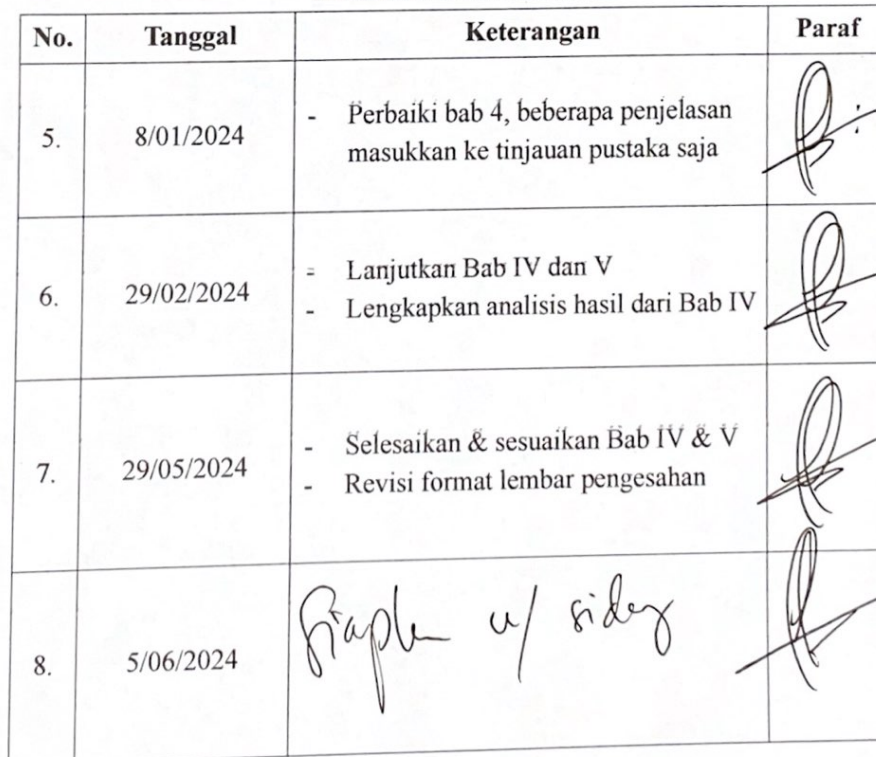 No. Tanggal Keterangan Paraf
5. 8/01/2024 - Perbaiki bab 4, beberapa penjelasan
masukkan ke tinjauan pustaka saja
6. 29/02/2024 - Lanjutkan Bab IV dan V
- Lengkapkan analisis hasil dari Bab IV
7. 29/05/2024 - Selesaikan & sesuaikan Bab IV & V
- Revisi format lembar pengesahan
8. 5/06/2024 Siapkan u/ sidang